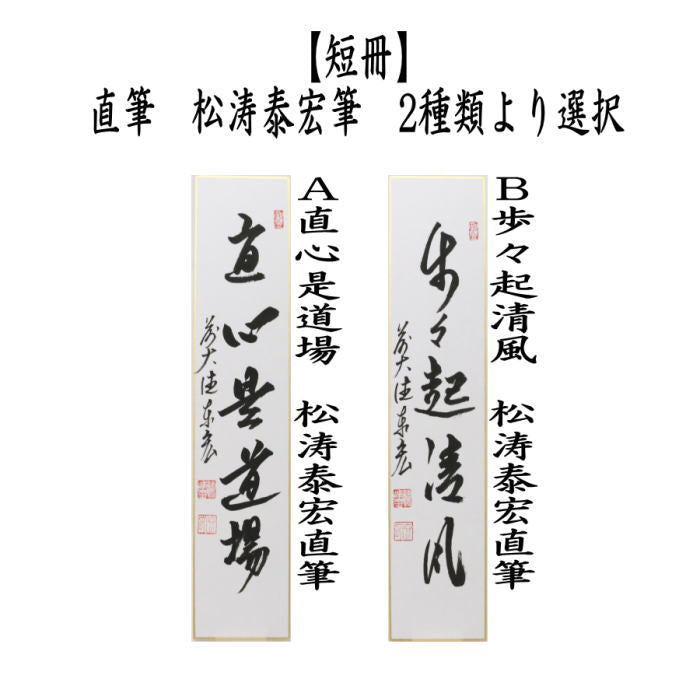 【短冊】
直筆　松涛泰宏筆　2種類より選択
直心是道場
前大徳泰宏
A直心是道場　松涛泰宏直筆
歩々起清風
前大徳泰宏
B歩々起清風　松涛泰宏直筆